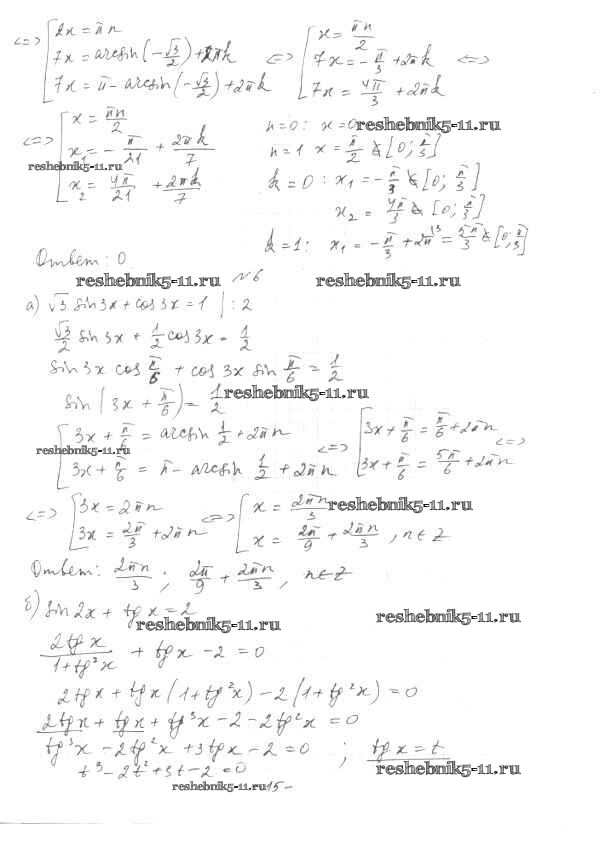 <=> [ 2x = πn
7x = arcsin(-√3/2) + 2πk
7x = π - arcsin(-√3/2) + 2πk
<=> [ x = πn/2
7x = -π/3 + 2πk
7x = 4π/3 + 2πk <=>
<=> [ x = πn/2
x₁ = -π/21 + 2πk/7
x₂ = 4π/21 + 2πk/7
n=0: x=0
n=1 x = π/2 ∉ [0; π/3]
k=0: x₁ = -π/3 ∉ [0; π/3]
x₂ = 4π/3 ∉ [0; π/3]
k=1: x₁ = -π/3 + 2π = 5π/3 ∉ [0; π/3]
reshebnik5-11.ru
reshebnik5-11.ru
Ответ: 0
reshebnik5-11.ru
reshebnik5-11.ru
№6
а) √3 sin3x + cos3x = 1 | :2
√3/2 sin3x + 1/2 cos3x = 1/2
sin3x cos π/6 + cos3x sin π/6 = 1/2
sin(3x + π/6) = 1/2
reshebnik5-11.ru
[ 3x + π/6 = arcsin 1/2 + 2πn
3x + π/6 = π - arcsin 1/2 + 2πn
<=> [ 3x + π/6 = π/6 + 2πn
3x + π/6 = 5π/6 + 2πn <=>
reshebnik5-11.ru
<=> [ 3x = 2πn
3x = 2π/3 + 2πn
<=> [ x = 2πn/3
x = 2π/9 + 2πn/3, n∈Z
reshebnik5-11.ru
Ответ: 2πn/3; 2π/9 + 2πn/3, n∈Z
б) sin2x + tgx = 2
reshebnik5-11.ru
reshebnik5-11.ru
2tgx/1+tg²x + tgx - 2 = 0
2tgx + tgx(1+tg²x) - 2(1+tg²x) = 0
2tgx + tgx + tg³x - 2 - 2tg²x = 0
tg³x - 2tg²x + 3tgx - 2 = 0 ; tgx = t
t³ - 2t² + 3t - 2 = 0
reshebnik5-11.ru
reshebnik5-11.ru
15 -